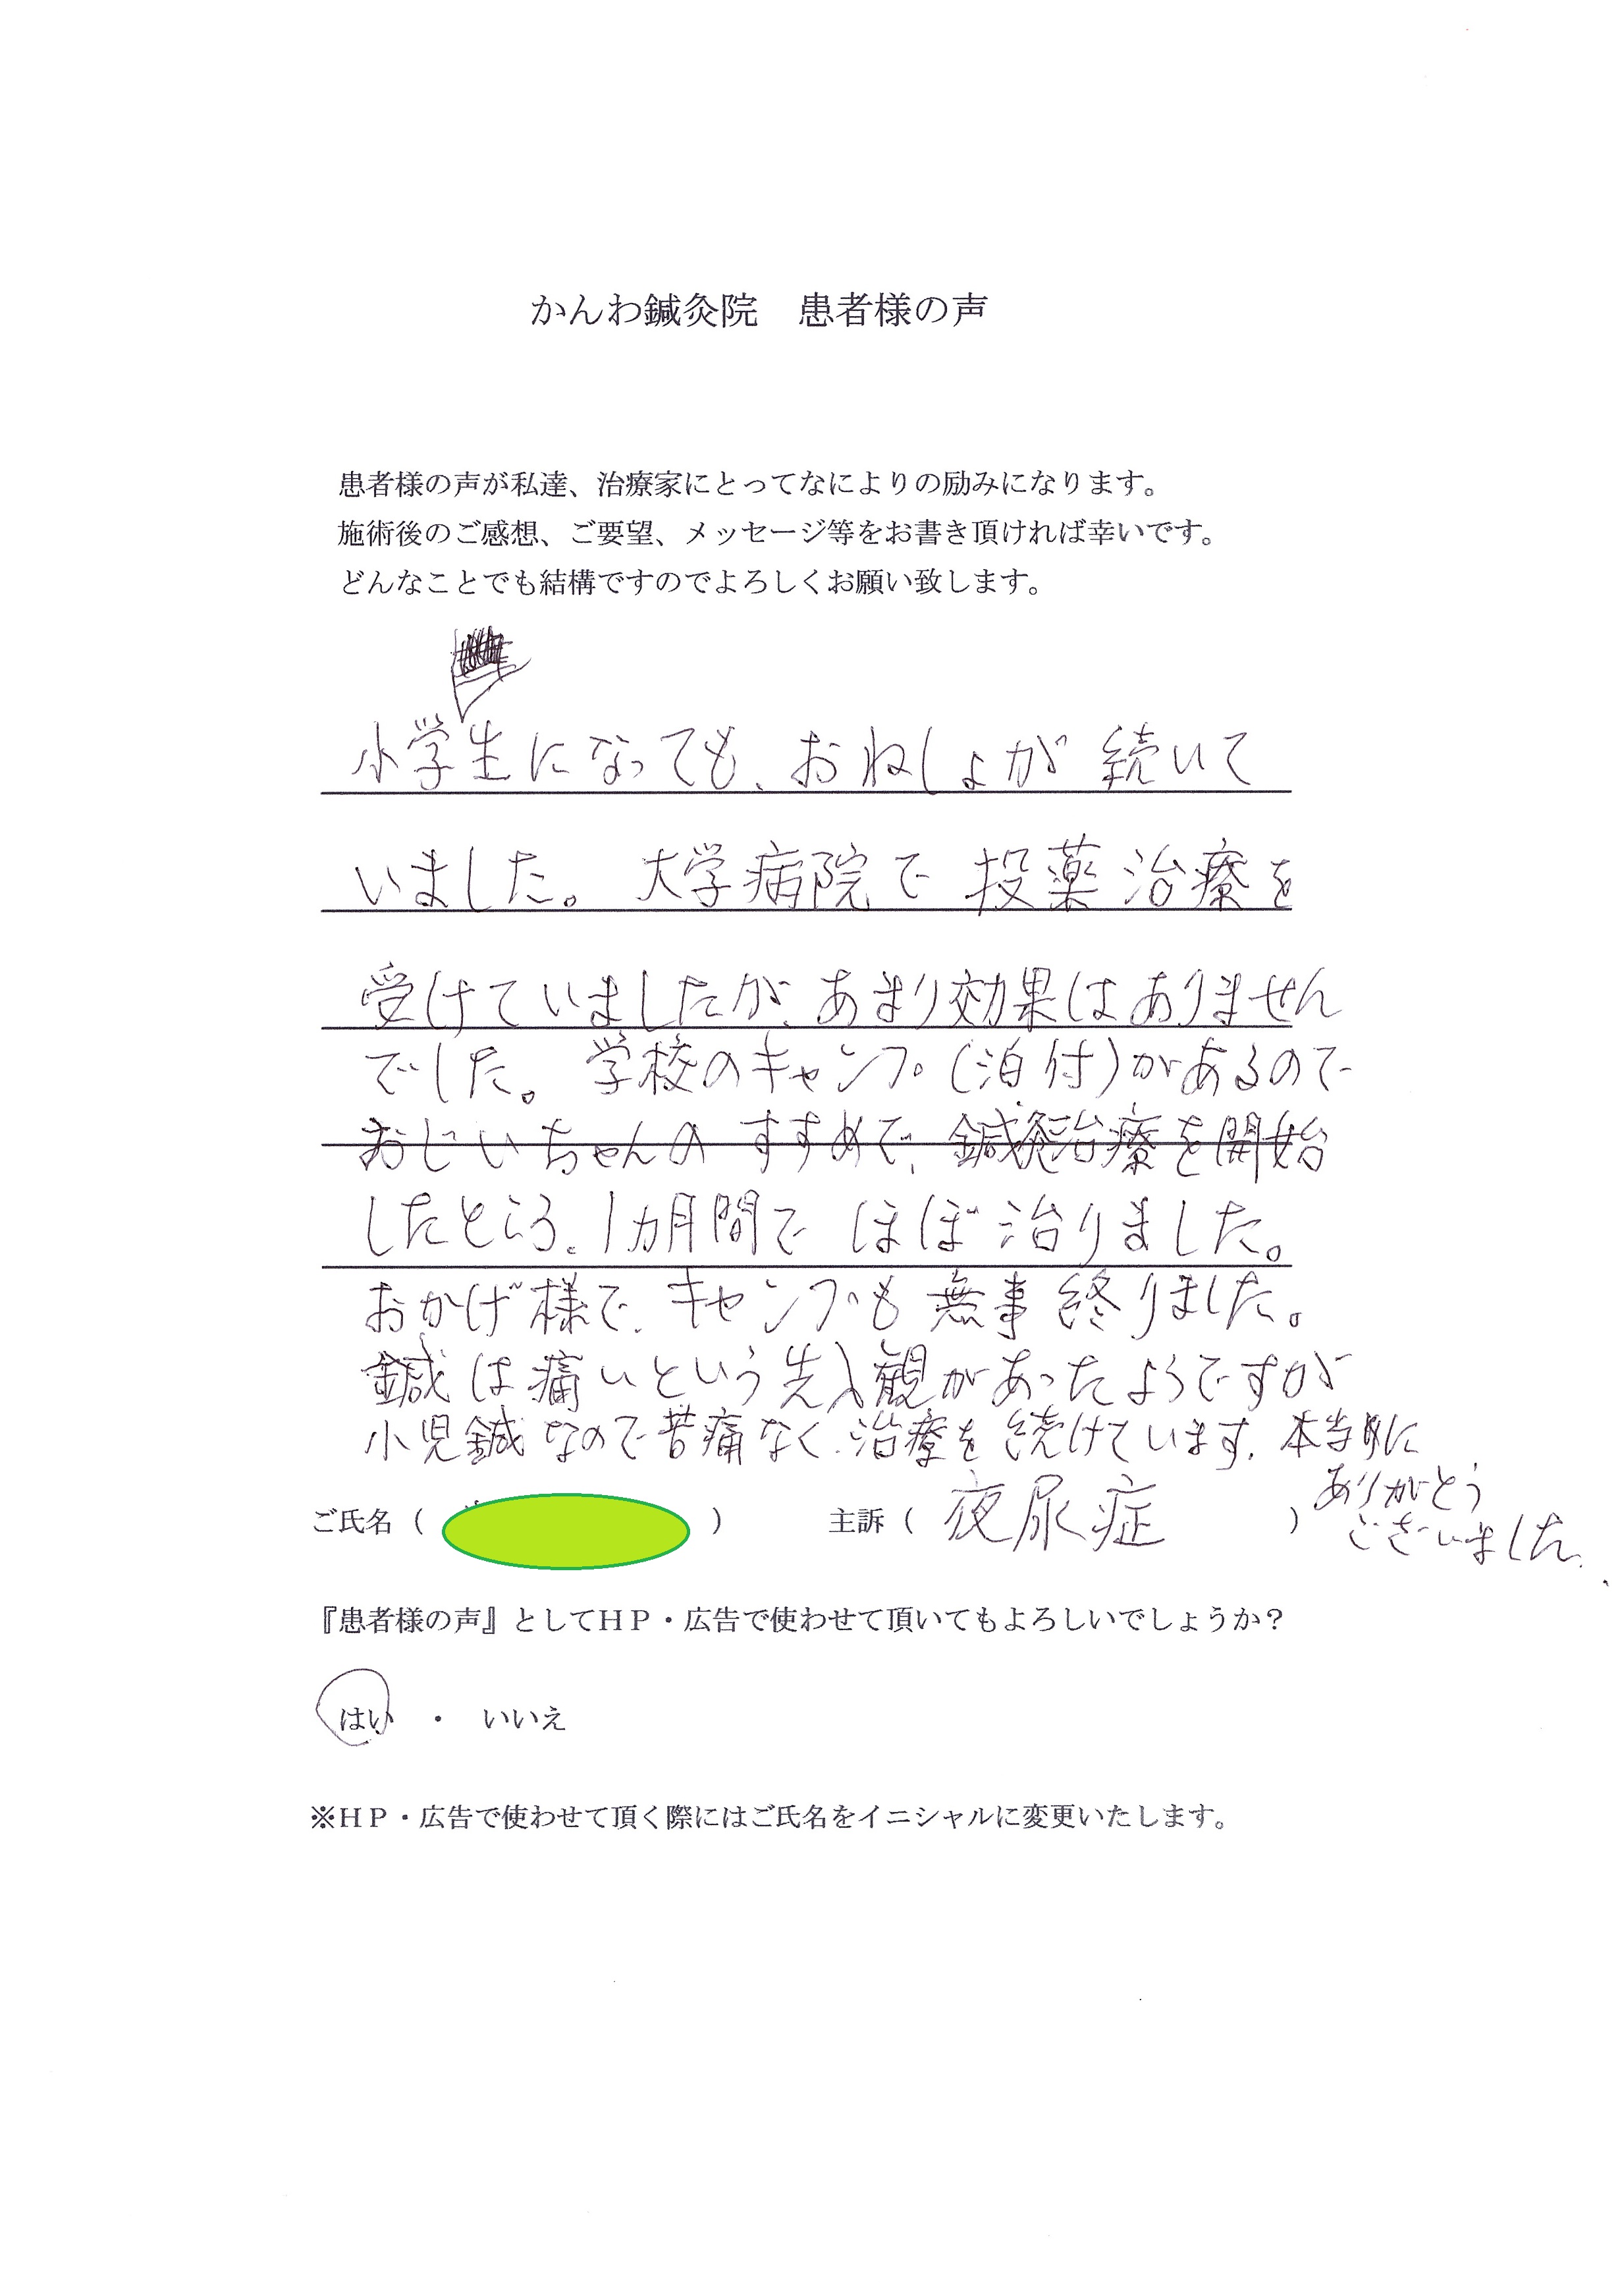 かんわ鍼灸院　患者様の声
患者様の声が私達、治療家にとってなによりの励みになります。
施術後のご感想、ご要望、メッセージ等をお書き頂ければ幸いです。
どんなことでも結構ですのでよろしくお願い致します。
小学生になっても、おねしょが続いて
いました。大学病院で投薬治療を
受けていましたが、あまり効果はありません
でした。学校のキャンプ（泊付）があるので
おじいちゃんのすすめで、鍼灸治療を開始
したところ、1カ月間でほぼ治りました。
おかげ様で、キャンプも無事終りました。
鍼は痛いという先入観があったようですが
小児鍼なので苦痛なく治療を続けています。本当に
ありがとう
ございました。
ご氏名（　　　）　主訴（夜尿症）
『患者様の声』としてＨＰ・広告で使わせて頂いてもよろしいでしょうか？
はい　・　いいえ
※ＨＰ・広告で使わせて頂く際にはご氏名をイニシャルに変更いたします。